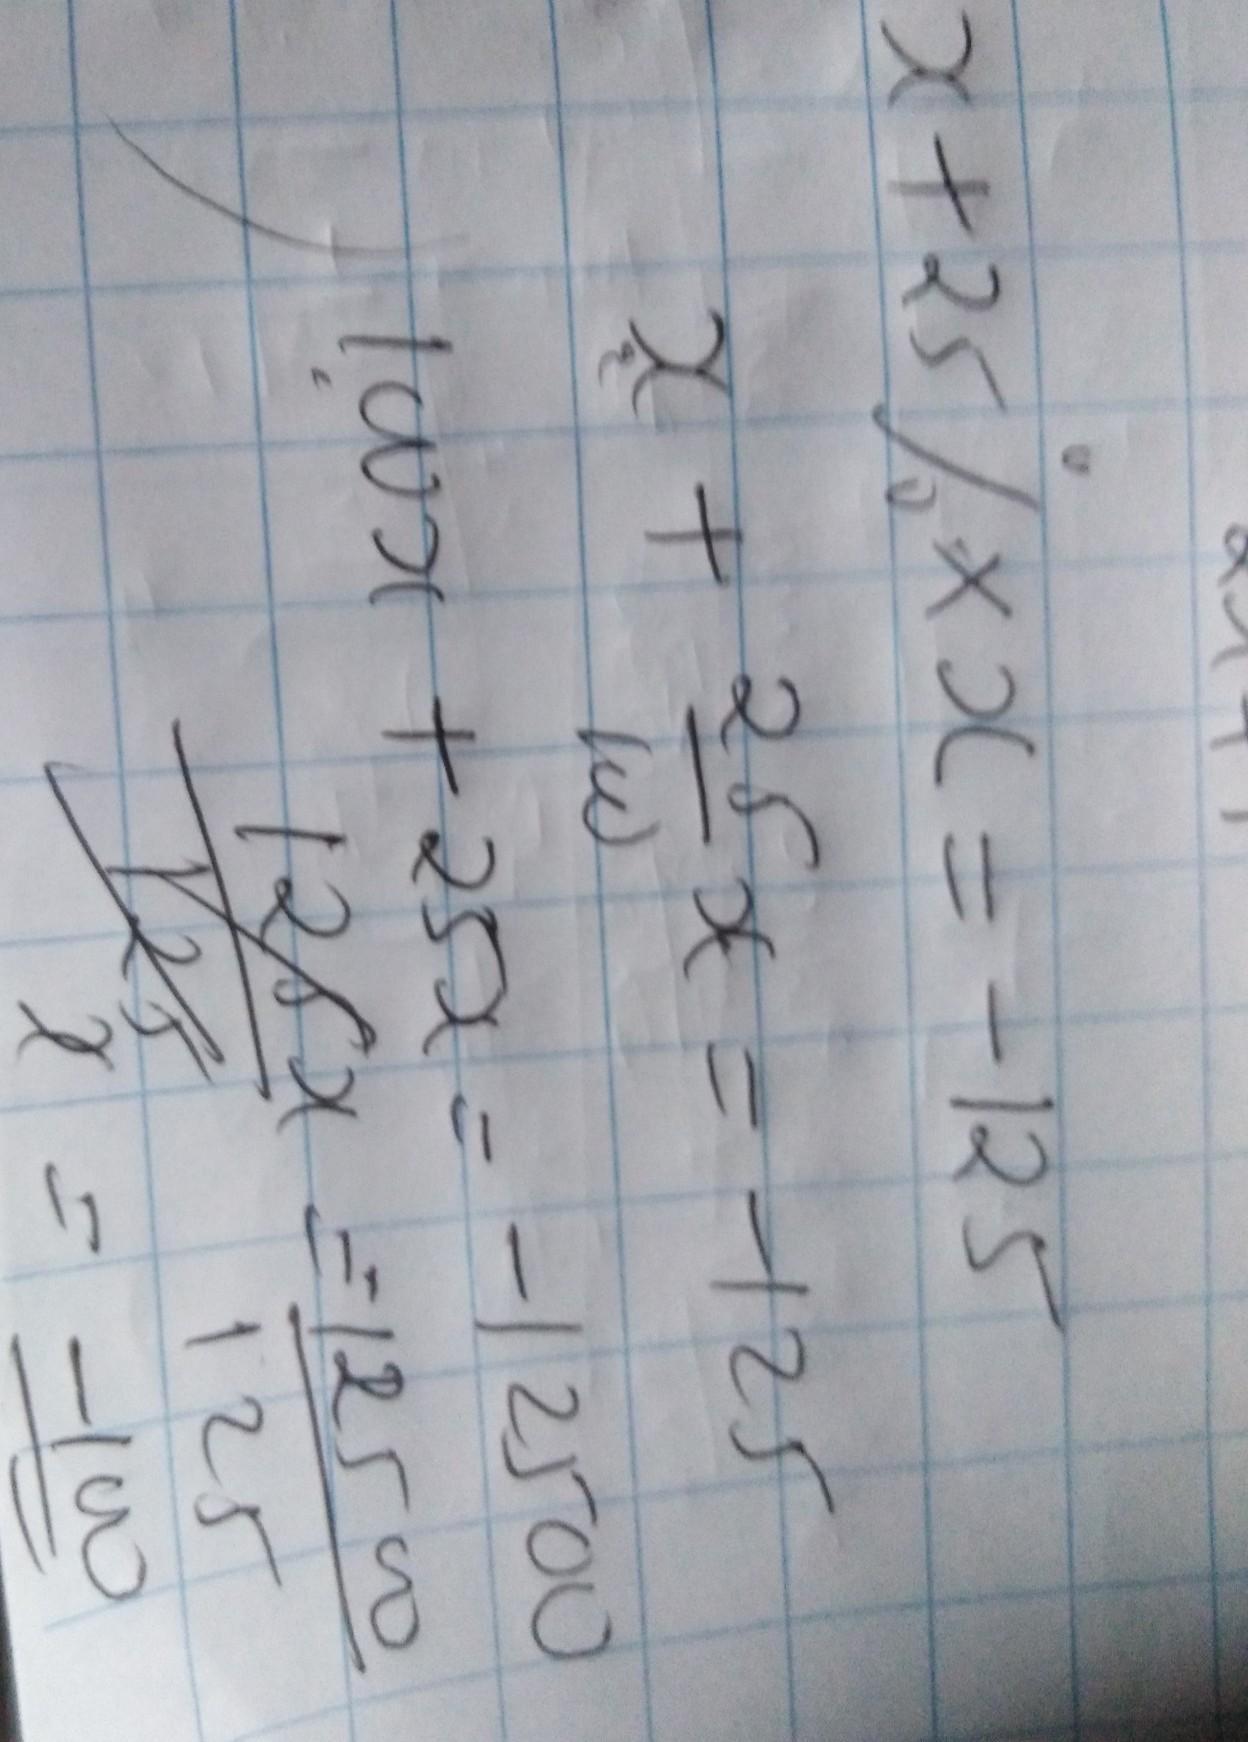 x + 25% × x = -125
x + 25/100 x = -125
100x + 25x = -12500
125x/125 = -12500/125
x = -100